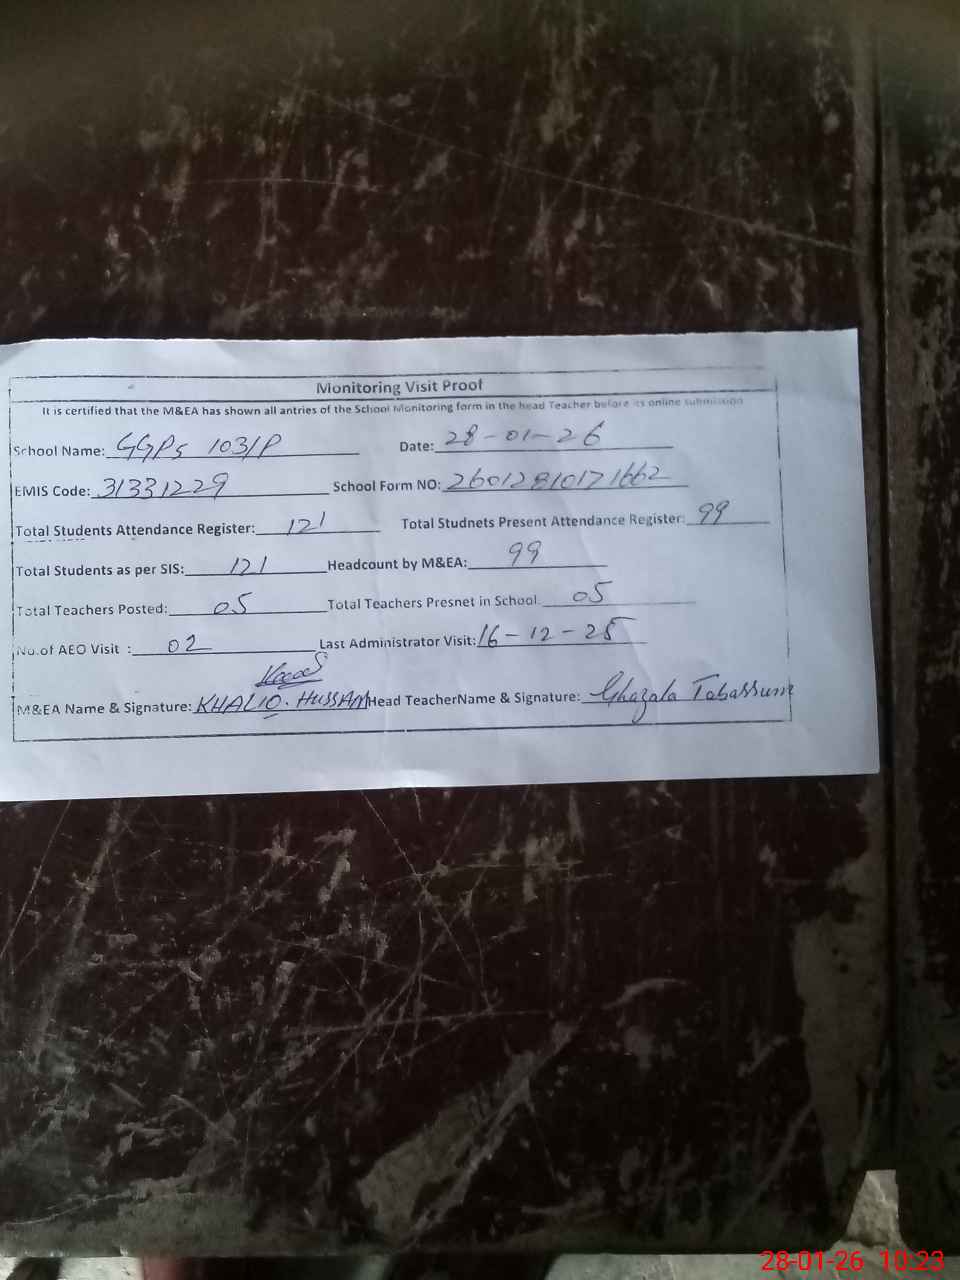 Monitoring Visit Proof
It is certified that the M&EA has shown all antries of the School Monitoring form in the head Teacher before its online submission
School Name: GGPS 103/P Date: 28-01-26
EMIS Code: 31331229 School Form NO: 26012810171662
Total Students Attendance Register: 121 Total Studnets Present Attendance Register: 99
Total Students as per SIS: 121 Headcount by M&EA: 99
Total Teachers Posted: 05 Total Teachers Presnet in School 05
No.of AEO Visit : 02 Last Administrator Visit: 16-12-25
M&EA Name & Signature: KHALIQ. HUSSAIN Head TeacherName & Signature: Ghazala Tabassum
28-01-26 10:23